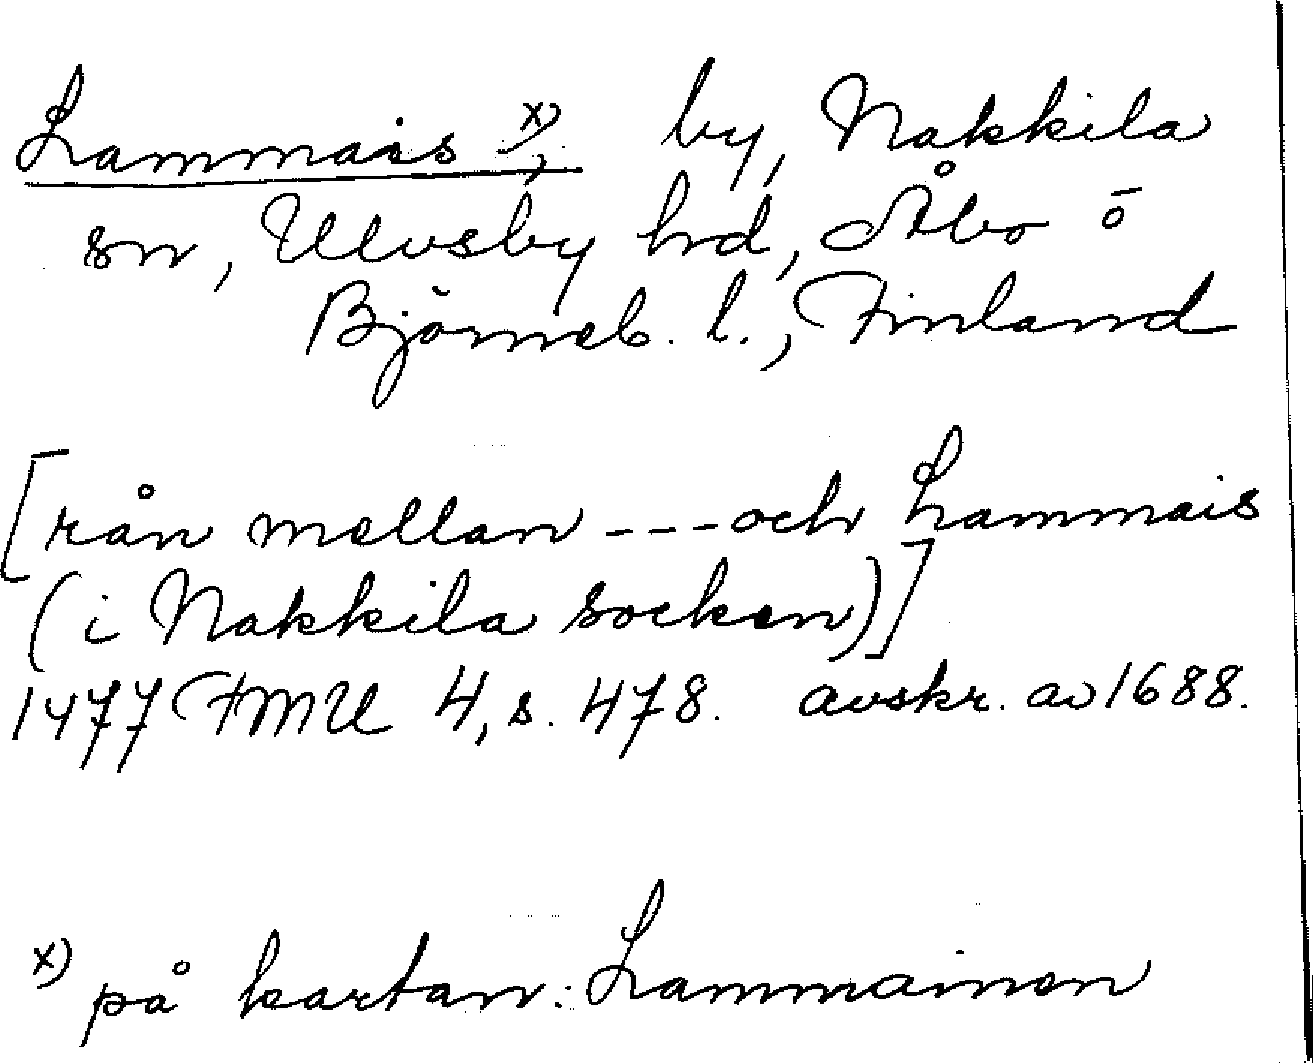 Lammais x), by, Nakkila
sn, Ulvsby hd, Åbo o
Björneb. l., Finland
[rån mellan --- och Lammais
(i Nakkila socken)]
1477 FMU 4, s. 478. avskr. av 1688.
x) på kartan: Lammainen